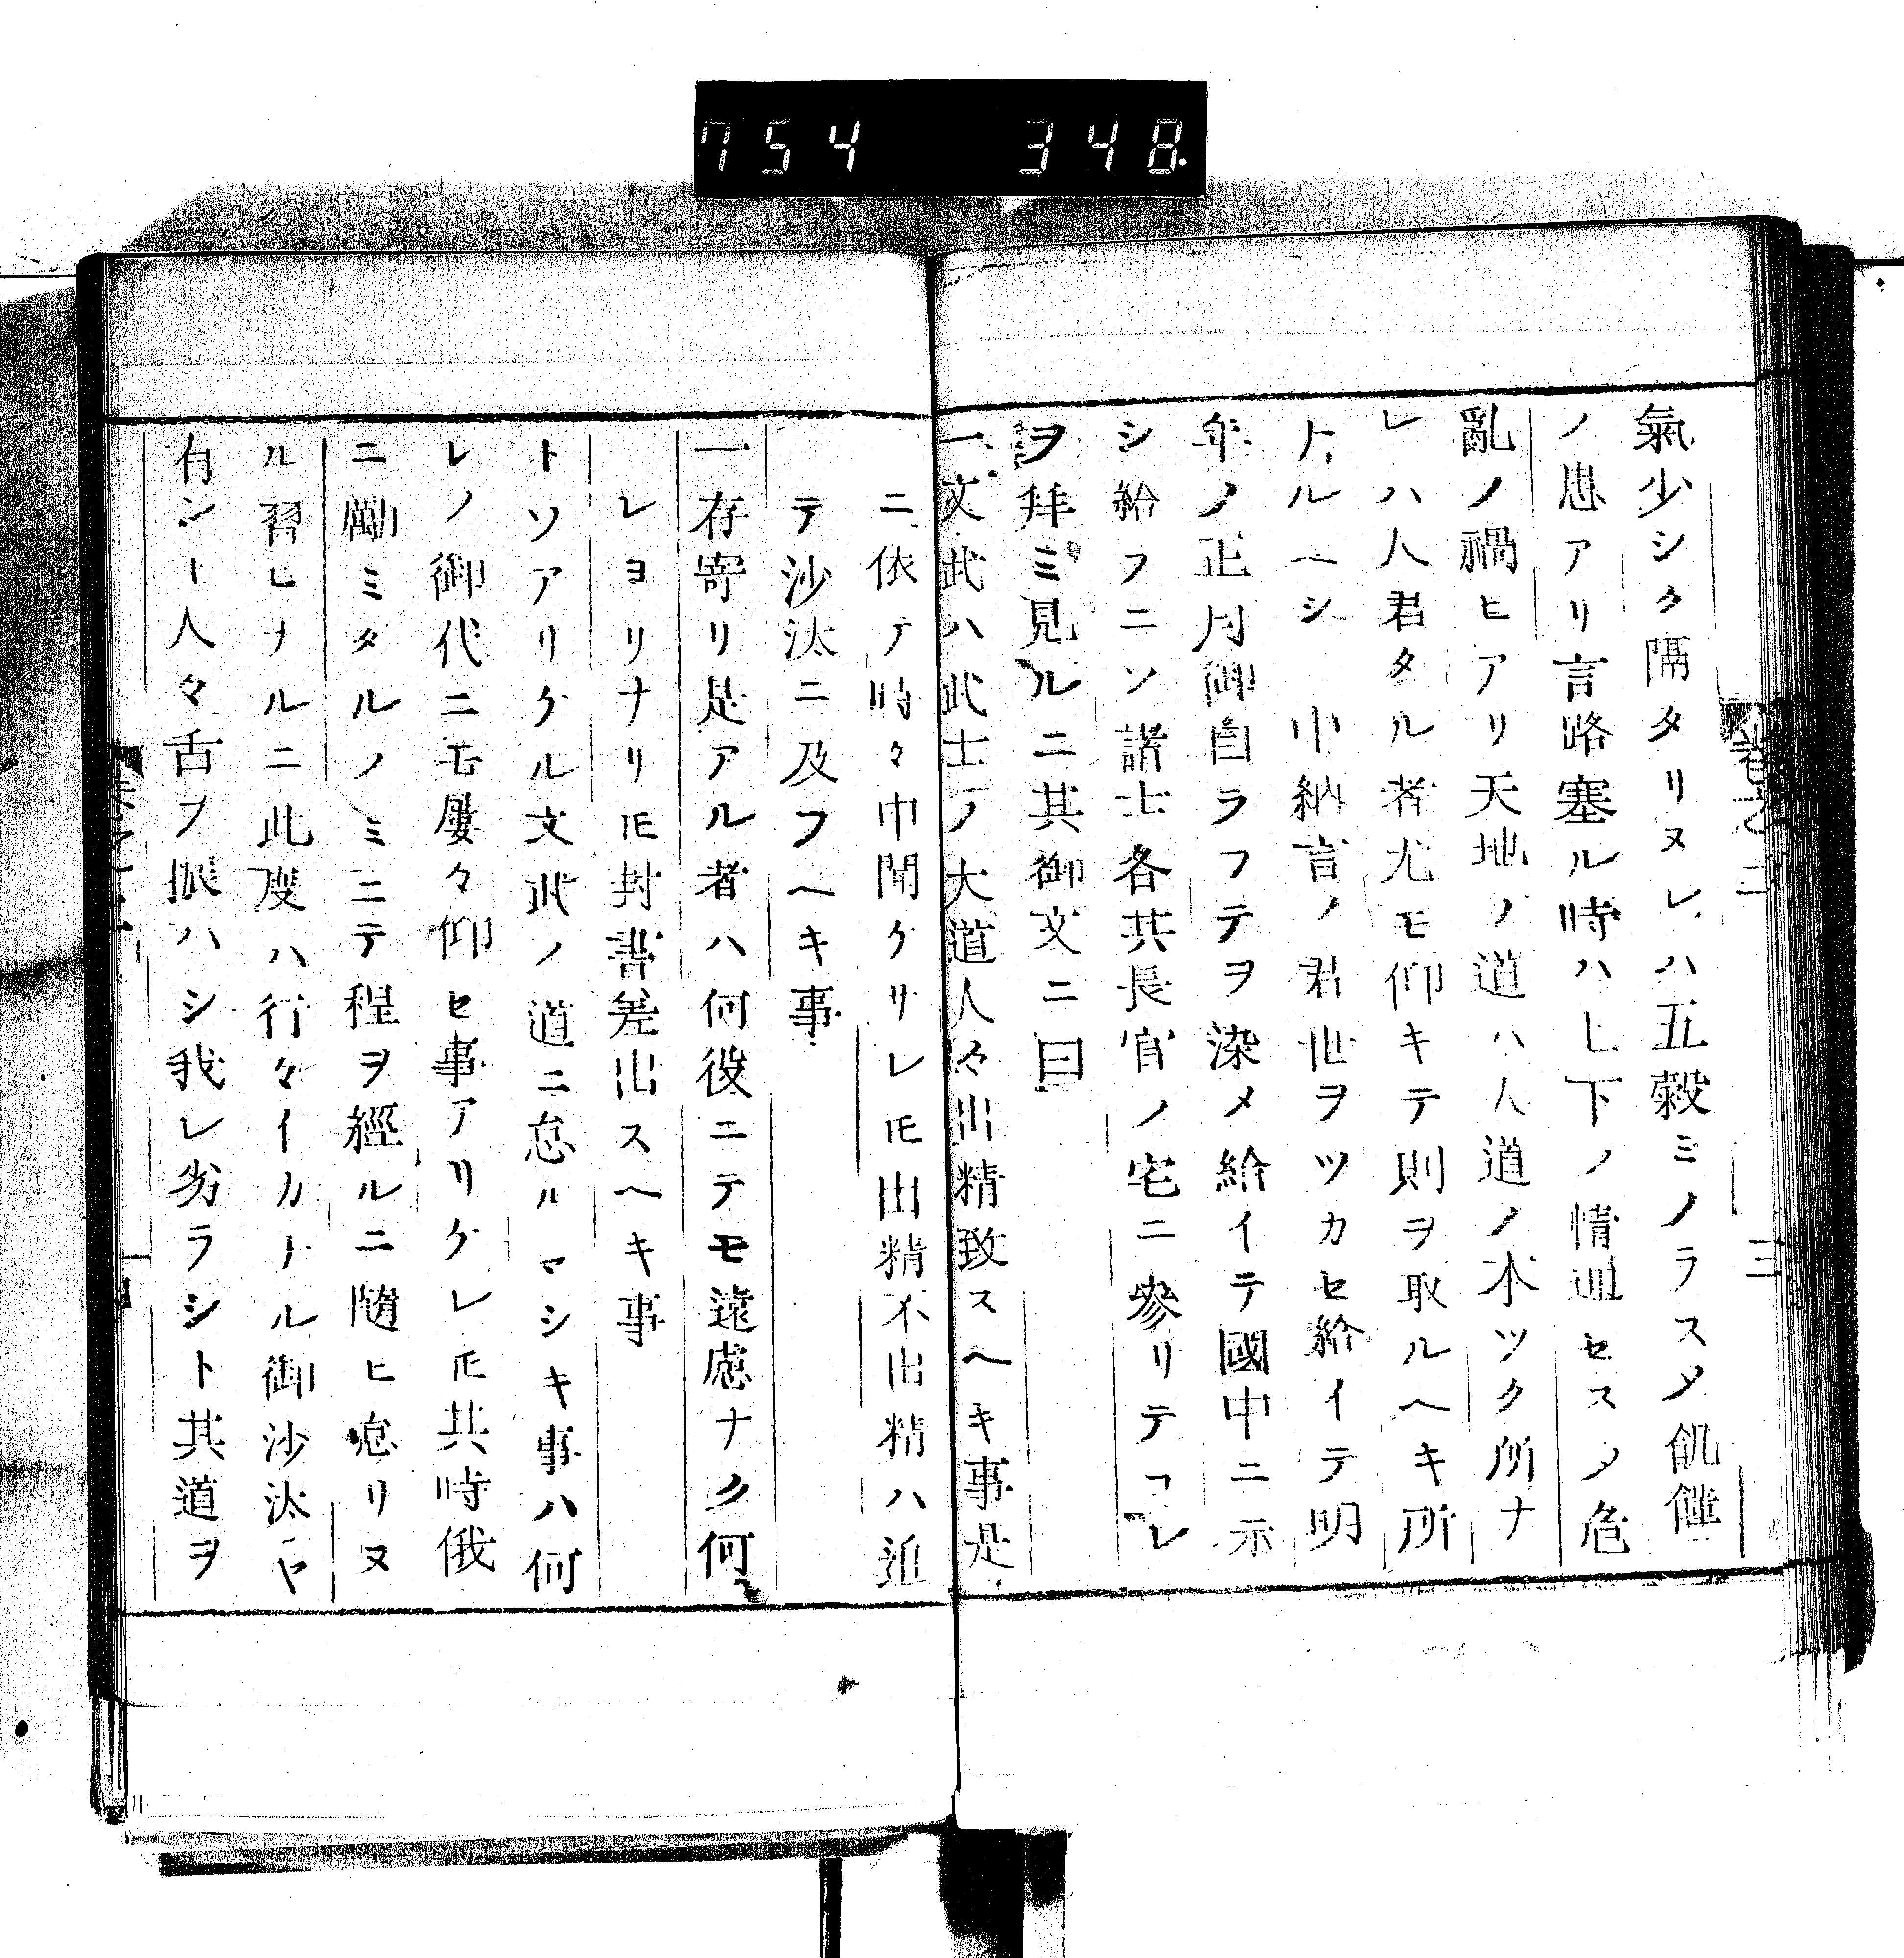 754 348
氣少シク隔タリヌレハ五穀ミノラスメ飢饉
ノ患アリ言路塞ル時ハ上下ノ情通セスメ危
亂ノ禍ヒアリ天地ノ道ハ人道ノ本ツク所ナ
レハ人君タル者尤モ仰キテ則ヲ取ルヘキ所
ナルヘシ 中納言ノ君世ヲツカセ給イテ明
年ノ正月御自ラフテヲ染メ給イテ國中ニ示
シ給フニソ諸士各其長官ノ宅ニ參リテコレ
ヲ拜ミ見ルニ其御文ニ曰
一文武ハ武士ノ大道人々出精致スヘキ事是
ニ依テ時々申聞ケサレ𪜈出精不出精ハ追
テ沙汰ニ及フヘキ事
一存寄リ是アル者ハ何役ニテモ遠慮ナク何
レヨリナリ𪜈封書差出スヘキ事
トソアリケル文武ノ道ニ怠ルマシキ事ハ何
レノ御代ニモ屢々仰セ事アリケレ𪜈其時俄
ニ勵ミタルノミニテ程ヲ經ルニ隨ヒ怠リヌ
ル習ヒナルニ此度ハ行々イカナル御沙汰ヤ
有ント人々舌ヲ振ハシ我レ劣ラシト其道ヲ